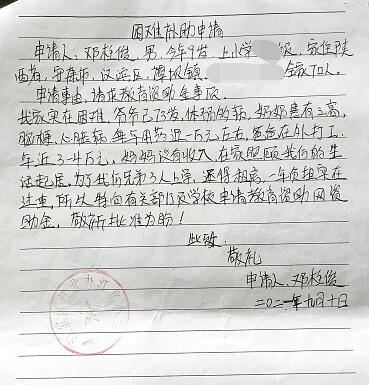 困难补助申请
申请人：邓桂俊，男，今年9岁，上小学 级，家住陕
西省，安康市，汉滨区，谭坝镇， 全家7口人。
申请事由，请求教育资助金事项。
我家实在困难，爷爷已73岁，体弱多病，奶奶患有三高，
脑梗，心脏病，每年用药近一万元左右，爸爸在外打工，
年近3-4万元，妈妈没有收入在家照顾我们的生
活起居，为了我们兄弟3人上学，还得租房，一年负担实在
过重，所以特向有关部门及学校申请教育资助网资
助金，敬祈批准为盼！
此致
敬礼
申请人：邓桂俊
二〇二一年九月十日